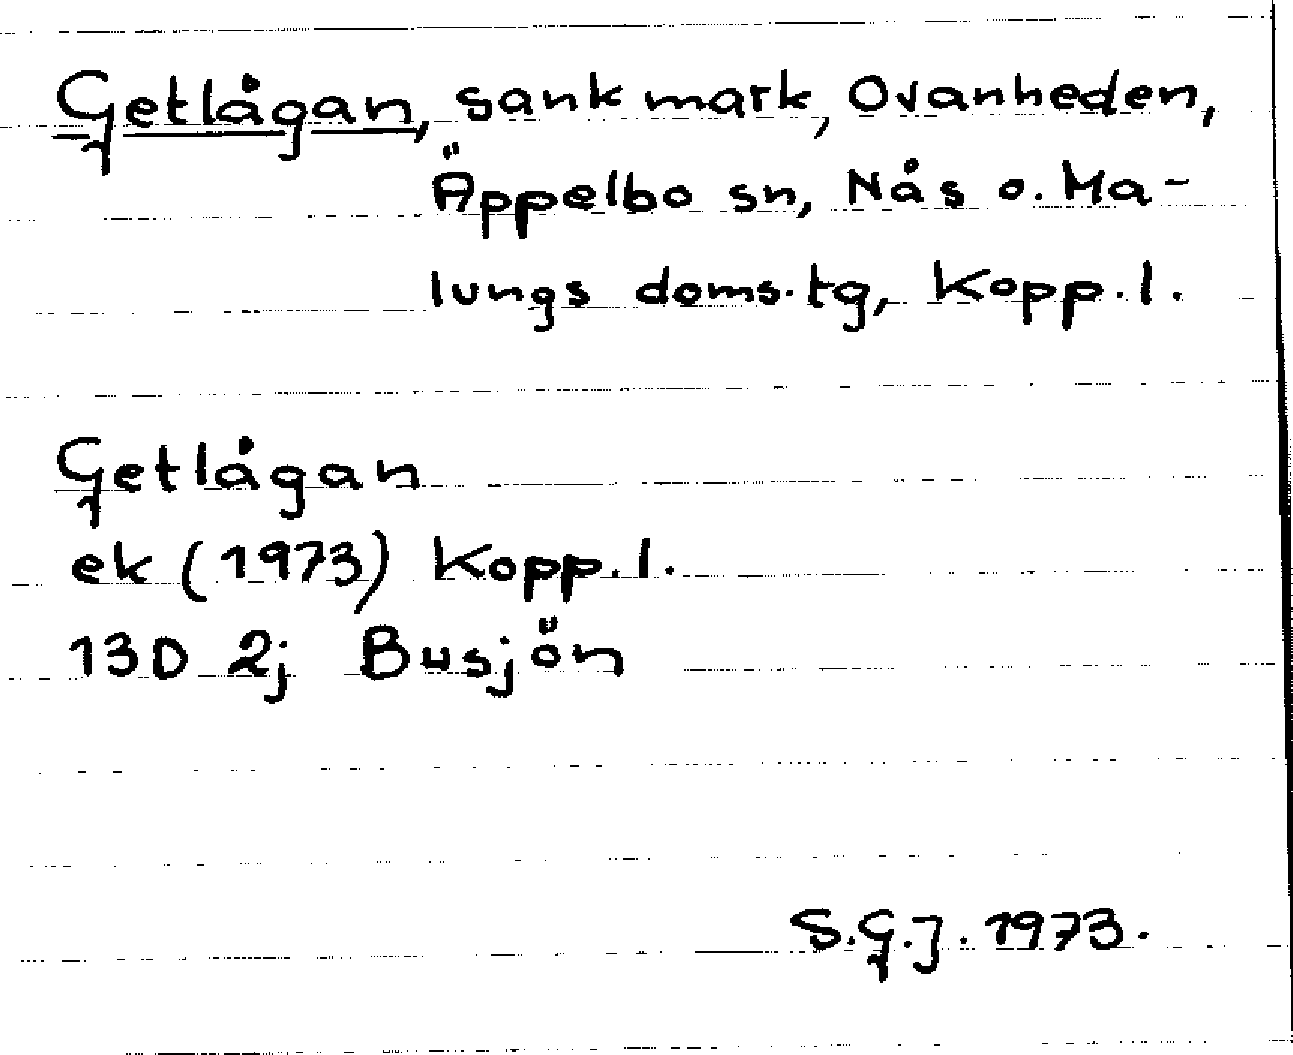 Getlågan, sank mark, Ovanheden,
Äppelbo sn, Nås o. Ma-
lungs doms.tg, Kopp.l.
Getlågan
ek (1973) Kopp.l.
13D 2j Busjön
S.G.J. 1973.